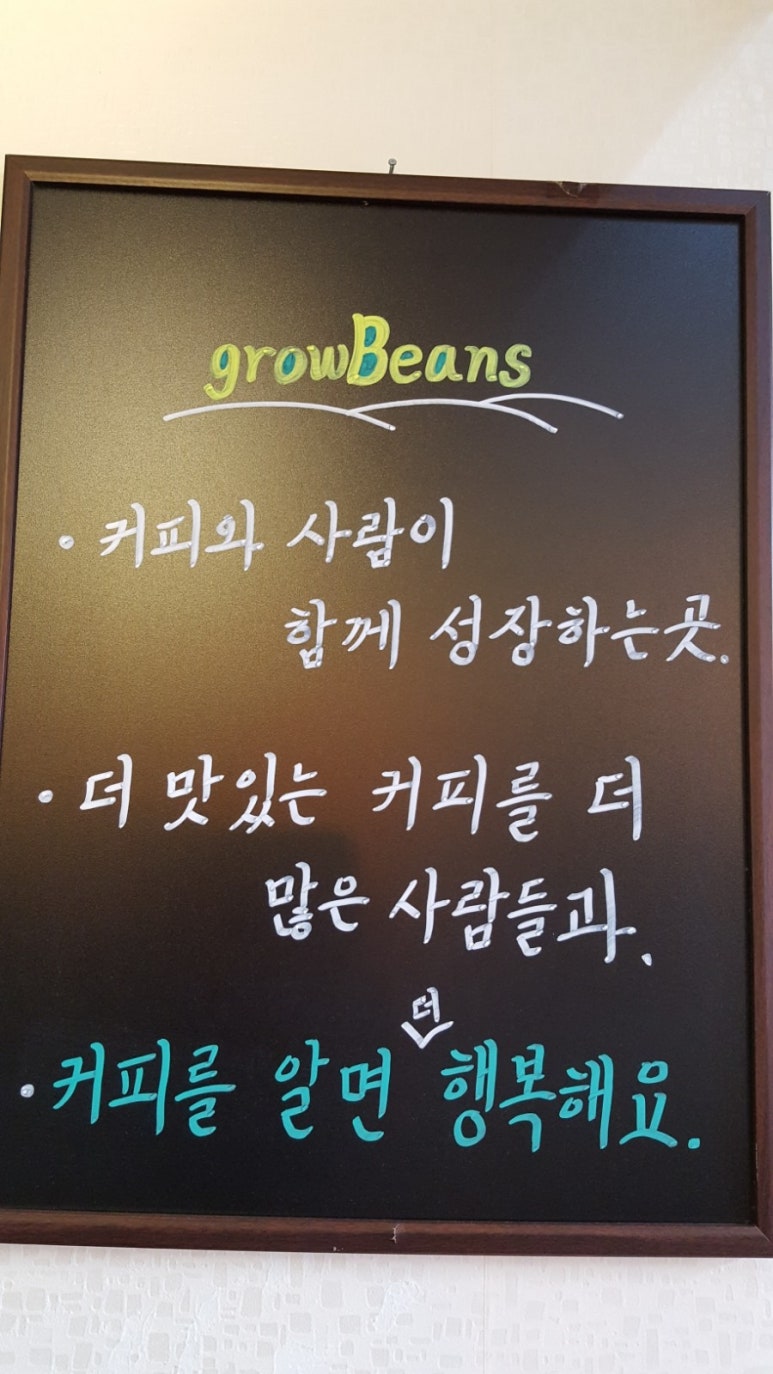 growBeans
· 커피와 사람이
함께 성장하는곳.
· 더 맛있는 커피를 더
많은 사람들과.
더
· 커피를 알면 행복해요.